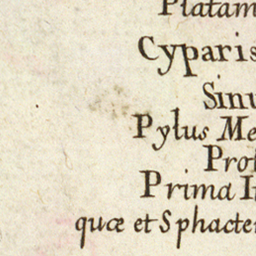 Platam
Cyparis
Sinu
Pylus Me
Prof
Prima I
quæ et Sphacte